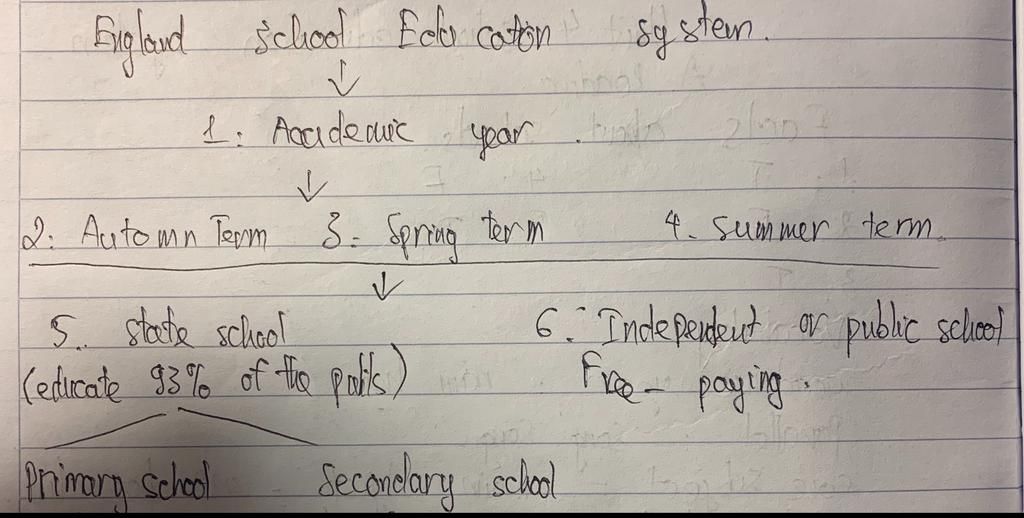 England school Education system.
1: Academic year.
2: Automn Term 3- Spring term 4- summer term.
5.. state school 6.- Independent or public school
(educate 93% of the ) Free- paying.
Primary school Secondary school